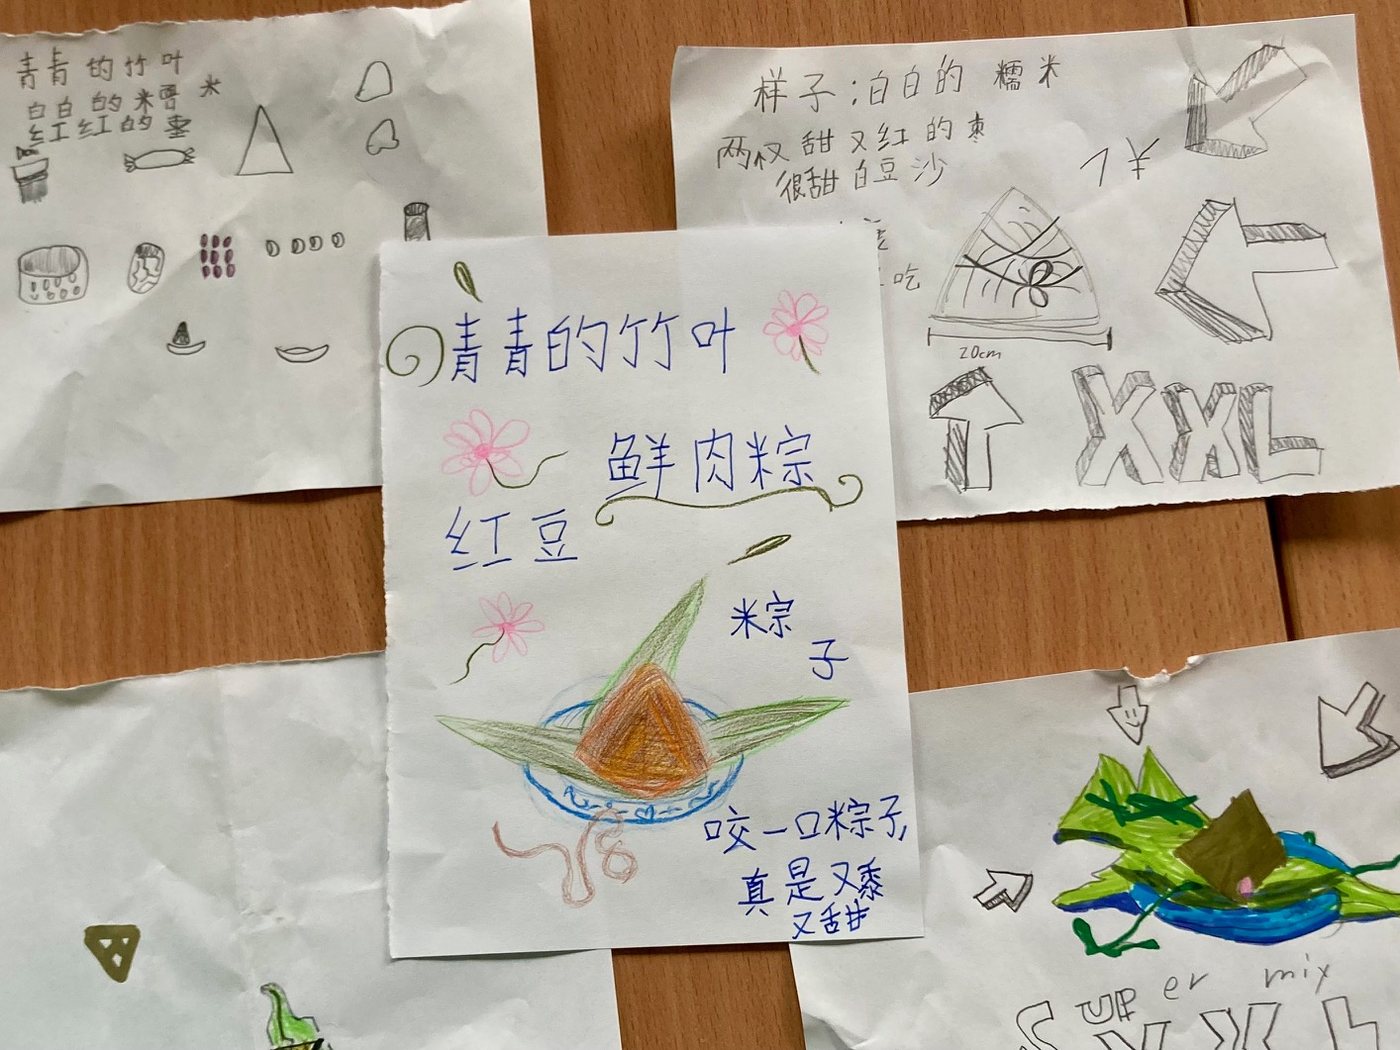 青青的竹叶
白白的糯米
红红的枣
样子:白白的 糯米
两杈甜又红的枣
很甜白豆沙
1¥
吃
20cm
XXL
青青的竹叶
鲜肉粽
红豆
米粽
子
咬一口粽子,
真是又黏
又甜
Super mix